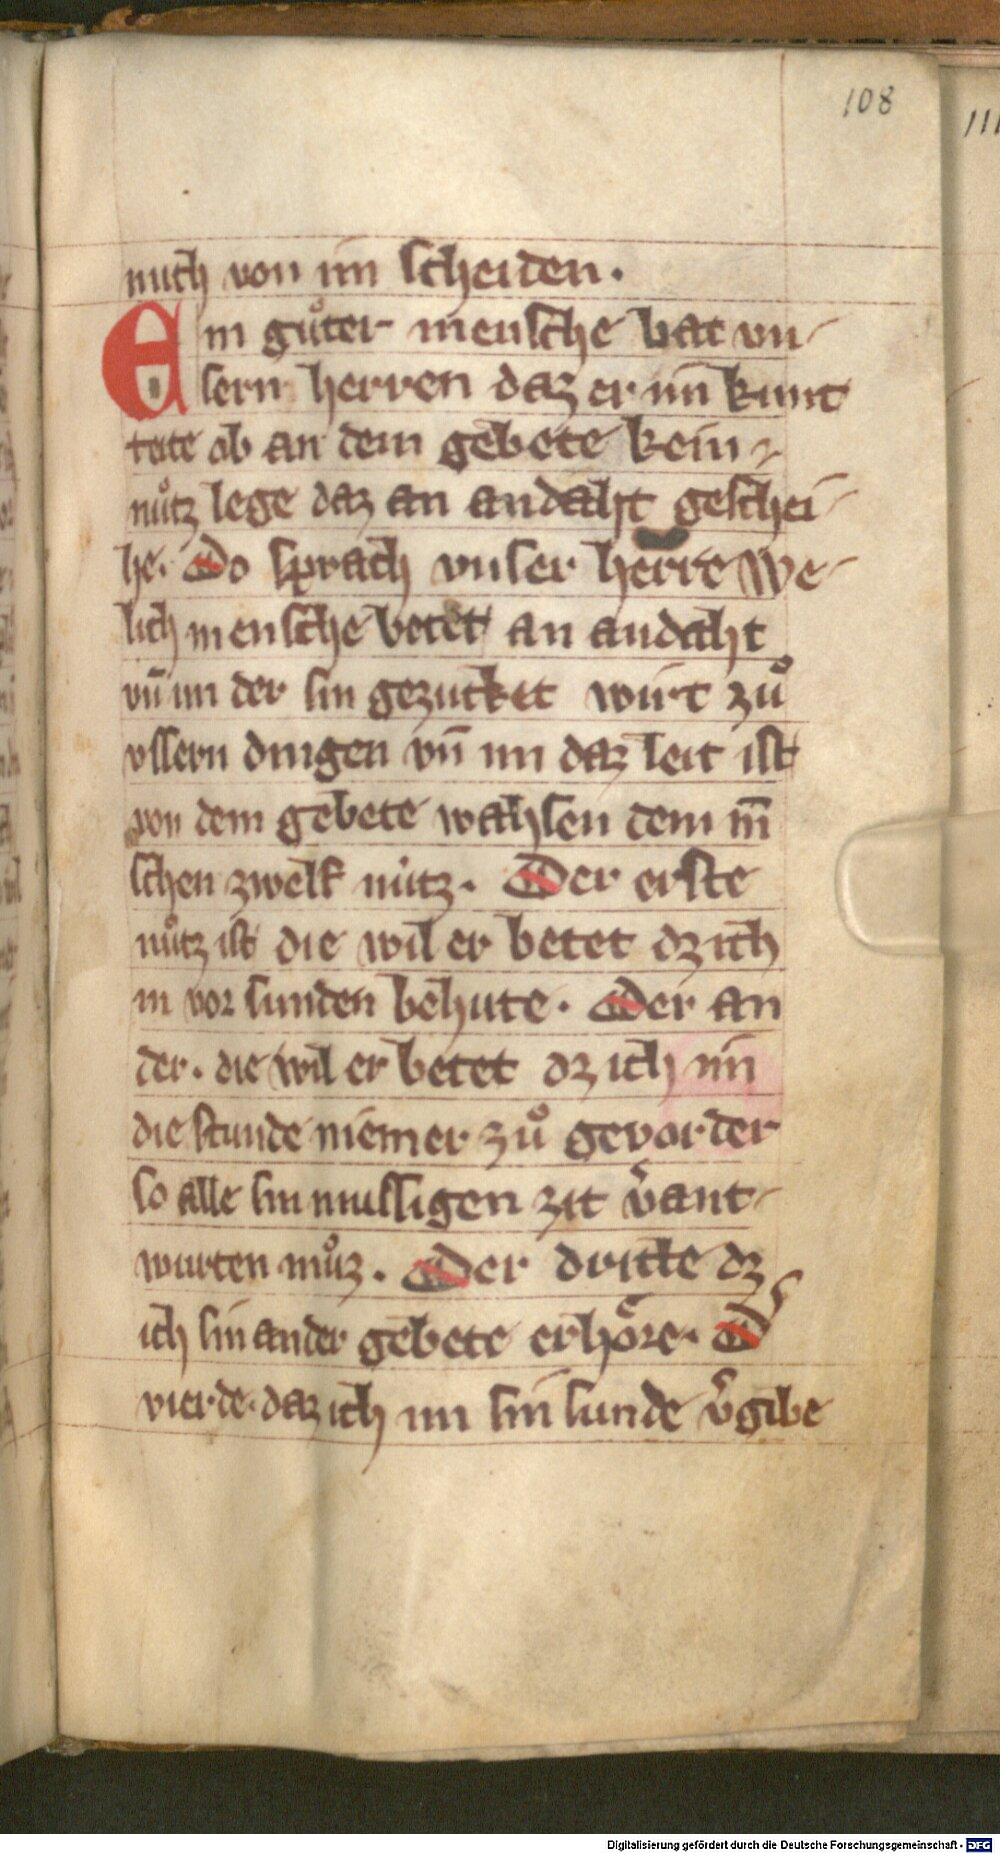 108
111
mich von im scheiden.
Ein guͦter mensche bat vn-
sern herren daz er im kunt
tete ob an dem gebete kein
nuͦtz lege daz an andaht geschei-
he. Do sprach vnser herre we-
lich mensche betet an andaht
vn̄ im der sin gezucket wirt zuͦ
vssern dingen vn̄ im daz leit ist
von dem gebete wahsen dem m̄
schen zwelf nutz. Der erste
nuͦtz ist die wil er betet dz ich
in vor sunden behute. Der an
der. die wil er betet dz ich im
die stunde niemer zuͦ gevorder
so alle sin mussigen zit v̓ant-
wurten muͦz. Der dritte dz
ich sin ander gebete erhoͤre. D̓
vierde. daz ich im sin sunde v̓gibe
Digitalisierung gefördert durch die Deutsche Forschungsgemeinschaft - DFG